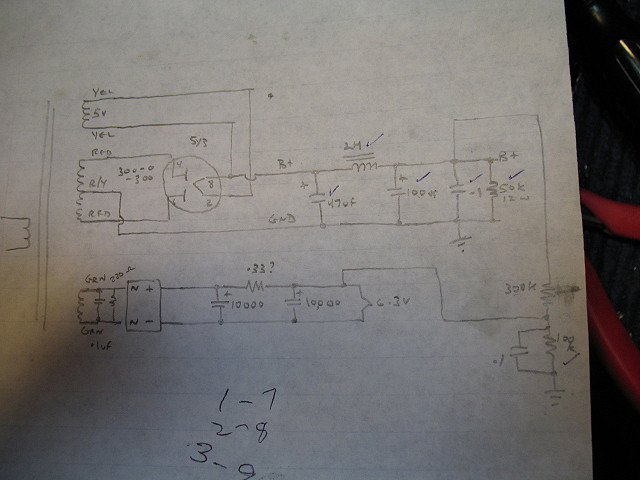 YEL
5V
YEL
5Y3
RED
300-0
-300
4
R/Y
8
6
2
RED
B+
2H
B+
+
47uF
+
100uF
.1
50K
12W
GND
GRN
.1uF
GRN
N +
N -
.33?
+
10000
+
10000
6.3V
300K
.1
1-7
2-8
3-9